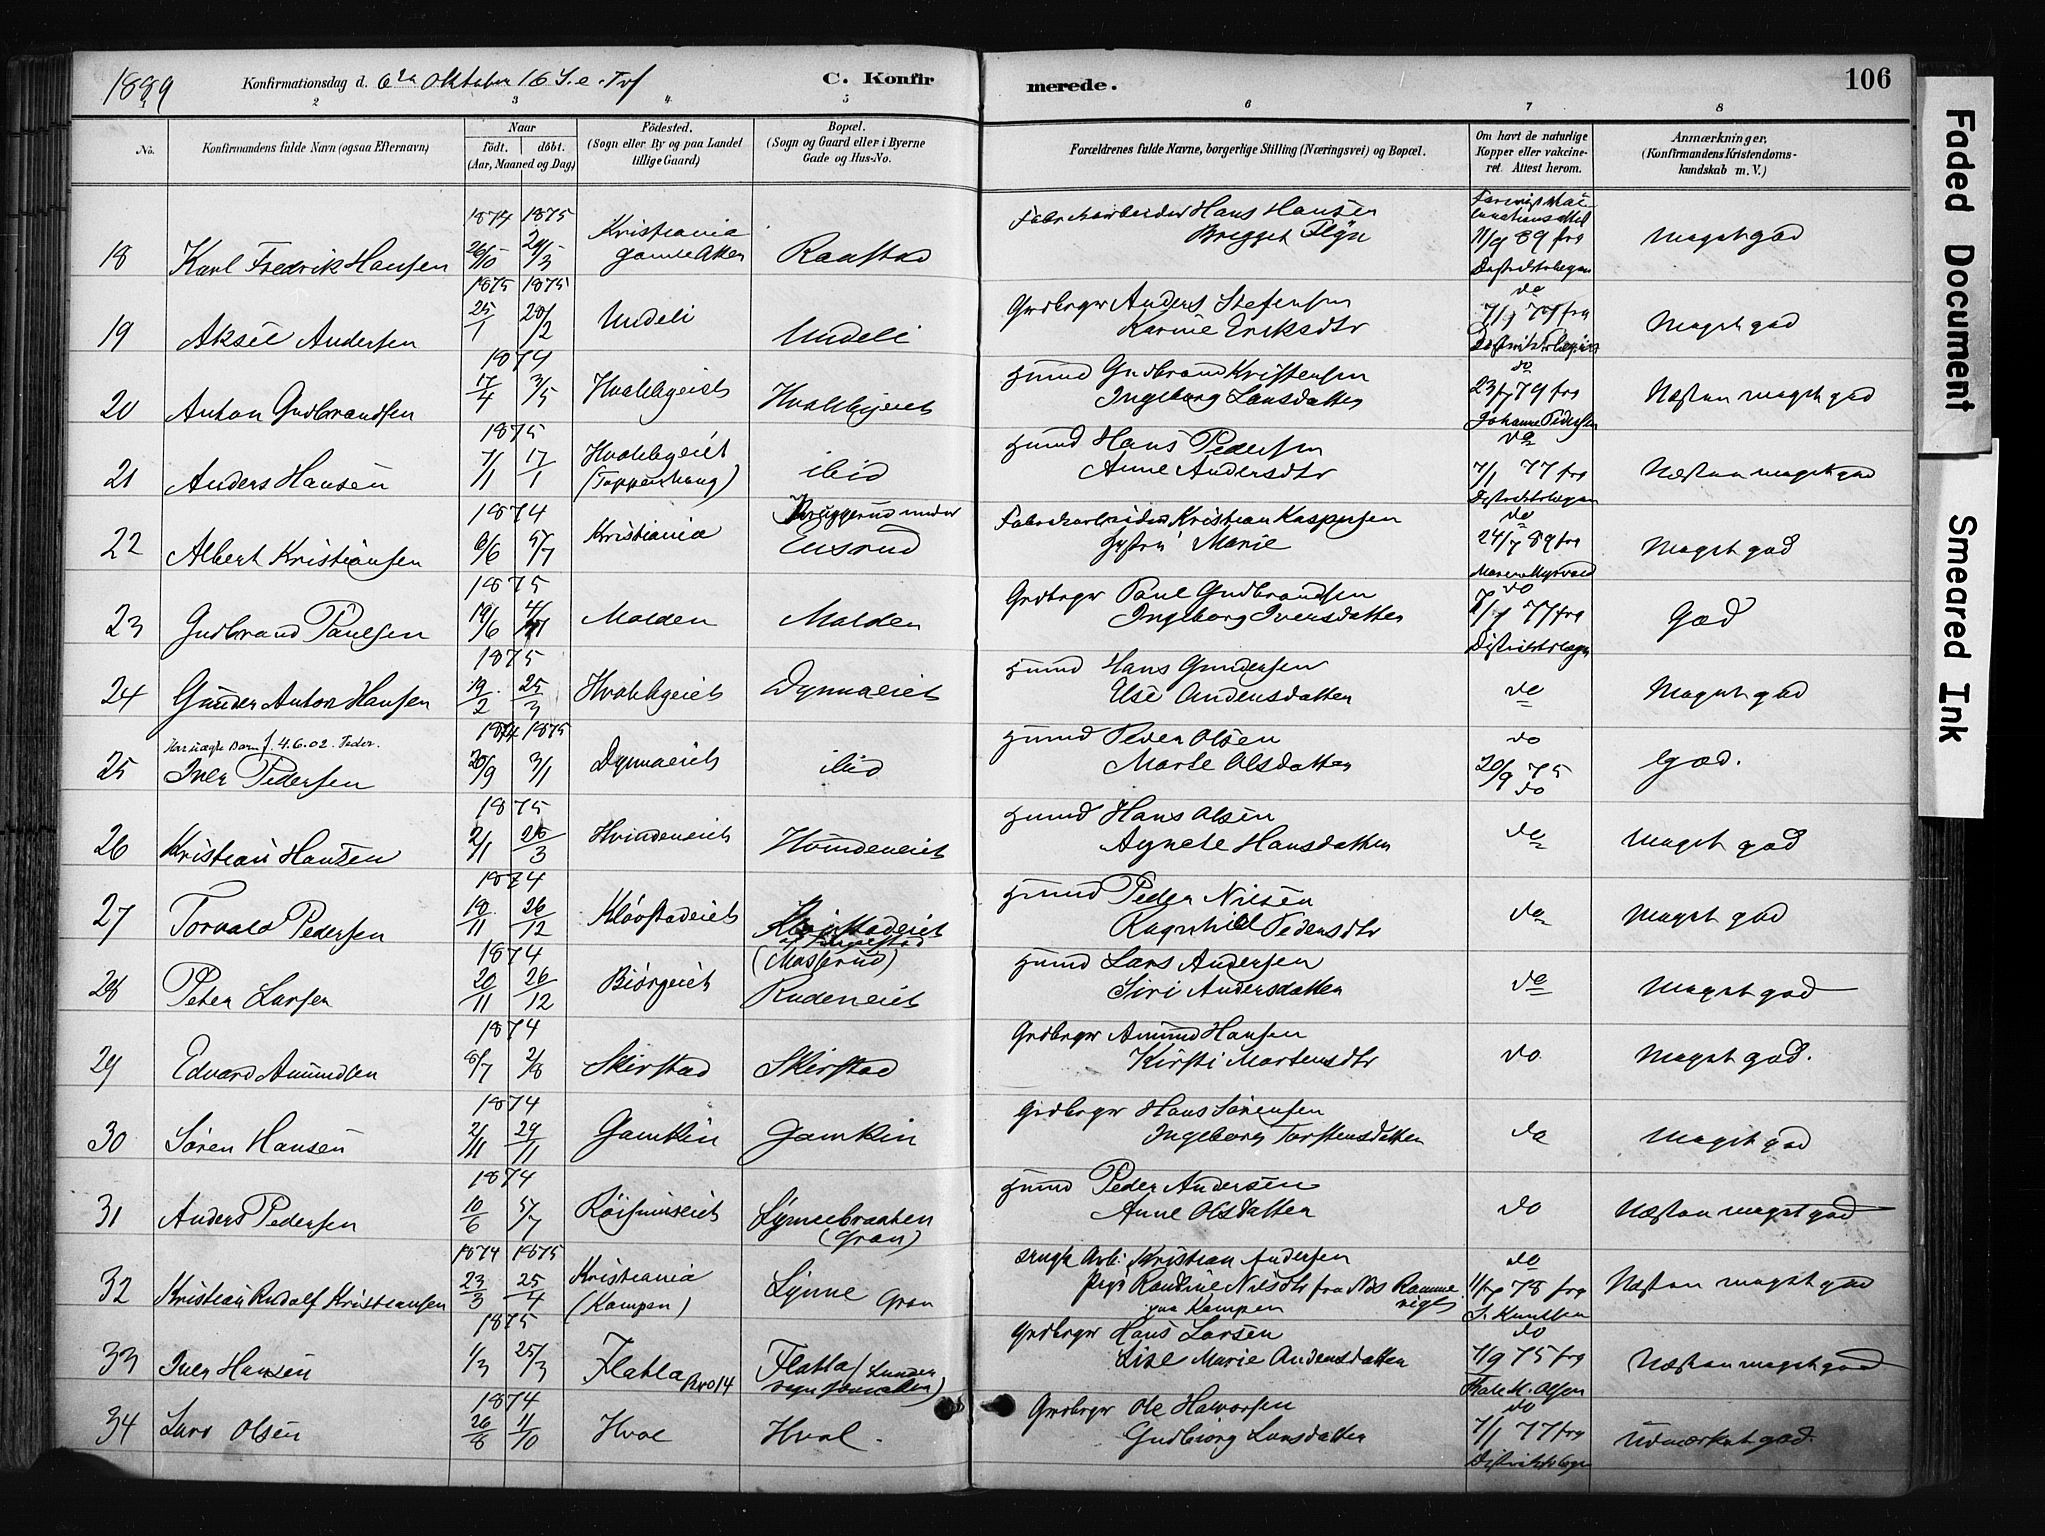 1889 Konfirmationsdag d. 6te Oktober 16 S. e. Trf C. Konfirmerede. 106
2 3 4 5 6 7 8
No. Konfirmandens fulde Navn (ogsaa Efternavn) Naar Födt. döbt. (Aar, Maaned og Dag) Födested. (Sogn eller By og paa Landet tillige Gaard) Bopæl. (Sogn og Gaard eller i Byerne Gade og Hus-No. Forældrenes fulde Navne, borgerlige Stilling (Næringsvei) og Bopæl. Om havt de naturlige Kopper eller vakcineret. Attest herom. Anmærkninger, (Konfirmandens Kristendomskundskab m. V.)
1874 1875
18 Karl Fredrik Hansen 26/10 29/3 Kristiania gamle Aker Raastad Fabrikarbeider Hans Hansen
Brigget Flyn 11/9 89 fra Distriktslægen Meget god
1875 1875
19 Aksel Andersen 25/1 28/2 Undeli Undeli Grdbrgr Anders Stefensen
Karine Eriksdtr do 7/1 77 fra Distriktslægen Meget god
1874
20 Anton Gudbrandsen 17/4 3/5 Hvalebyeiet Hvalebyeiet Husmd Gudbrand Kristensen
Ingeborg Larsdatter do 23/7 79 fra Johanne Pedersen Næsten meget god
1875
21 Anders Hansen 7/1 17/1 Hvalebyeiet (Toppenhaug) ibid Husmd Hans Pedersen
Anne Andersdtr do 7/1 77 fra Distriktslægen Næsten meget god
1874
22 Albert Kristiansen 6/6 5/7 Kristiania Bruggerud under Ensrud Fabrikarbeider Kristian Kaspersen
Hustru Marie do 24/7 89 fra Maren Myrvold Meget god
1875
23 Gudbrand Paulsen 19/6 4/7 Molden Molden Grdbrgr Paul Gudbrandsen
Ingeborg Iversdatter do 7/1 77 fra Distriktslægen God
1875
24 Gunder Anton Hansen 19/2 25/3 Hvalebyeiet Dynnaeiet Husmd Hans Gundersen
Else Andersdatter do Meget god
1874 1875
4.6.02. Feder.
25 Iver Pedersen 20/9 3/1 Dynnaeiet ibid Husmd Peder Olsen
Marte Olsdatter do 20/9 75 do God.
1875
26 Kristian Hansen 2/1 28/3 Hvindeneiet Hvindeneiet Husmd Hans Olsen
Agnete Hansdatter do Meget god
1874
27 Torvald Pedersen 18/11 26/12 Kløvstadeiet (Masserud) Husmd Peder Nilsen
Ragnhild Pedersdtr do Meget god
1874
28 Peter Larsen 20/11 26/12 Biørgeiet Rudeneiet Husmd Lars Andersen
Siri Andersdatter do Meget god
1874
29 Edvard Amundsen 8/7 2/8 Skirstad Skirstad Grdbrgr Amund Hansen
Kirsti Mortensdtr do Meget god.
1874
30 Søren Hansen 2/11 29/11 Gamkin Gamkin Grdbrgr Hans Sørensen
Ingeborg Torstensdatter do Meget god
1874
31 Anders Pedersen 10/6 5/7 Røisumseiet Lynnebraaten (Gran) Husmd Peder Andersen
Anne Olsdatter do Næsten meget god
1874 1875
32 Kristian Rudolf Kristiansen 23/3 25/4 Kristiania (Kampen) Lynne Gran Arb: Kristian Andersen
Pige Randine Nilsdtr fra Næs Romerige paa Kampen do 78 fra S. Knutsen Næsten meget god
1875
33 Iver Hansen 1/3 25/3 Flatla Bro 14 Flatla Grdbrgr Hans Larsen
Lise Marie Andersdatter do 7/9 75 fra M. Olsen Næsten meget god
1874
34 Lars Olsen 26/8 11/10 Hval Hval. Grdbrgr Ole Halvorsen
Gudbiørg Larsdatter do 7/1 77 fra Distriktslægen Udmærket god.
Faded Document
Smeared Ink